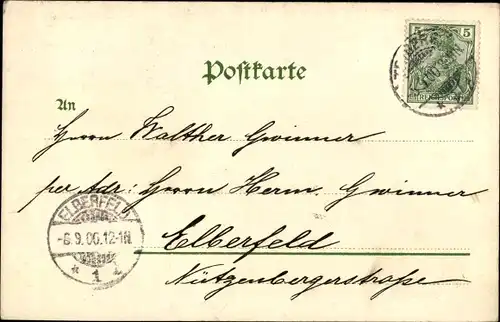 5 5
Postkarte
An
Herrn Walther Gwinner
per Adr: Herrn Herm. Gwinner
Elberfeld
Nützenbergerstraße
ELBERFELD
-6.9.00.12-1N.
* 1 *